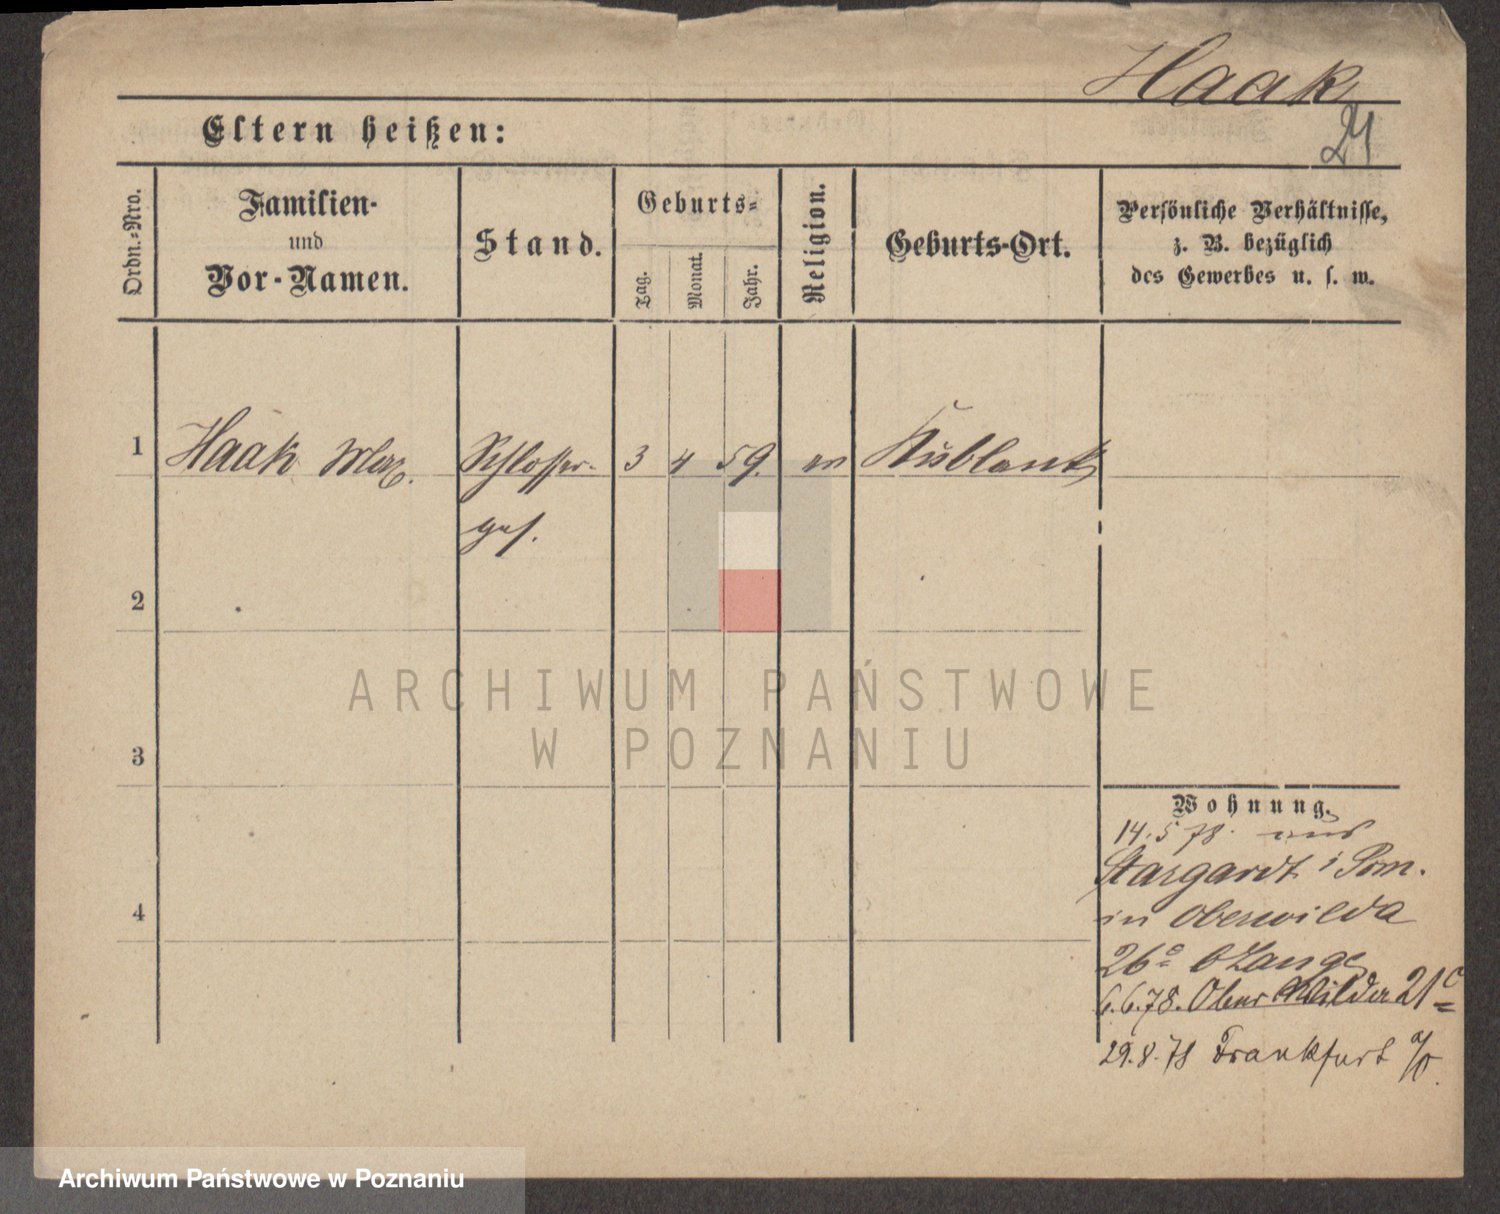 Haak
21
Eltern heißen:
Ordn.-Nro.
Familien-
und
Vor-Namen.
Stand.
Geburts-
Tag.
Monat.
Jahr.
Religion.
Geburts-Ort.
Persönliche Verhältnisse,
z. B. bezüglich
des Gewerbes u. s. w.
1 Haak Schlosser- 3 4 59. Küblank
ges.
2
3
4
ARCHIWUM PAŃSTWOWE
W POZNANIU
Wohnung.
14.5 78. aus
Stargardt i Pom.
in Oberwilda
26 b Lange
6.6.78. Ober Wilda 21c
29.8.78 Frankfurt a/O.
Archiwum Państwowe w Poznaniu